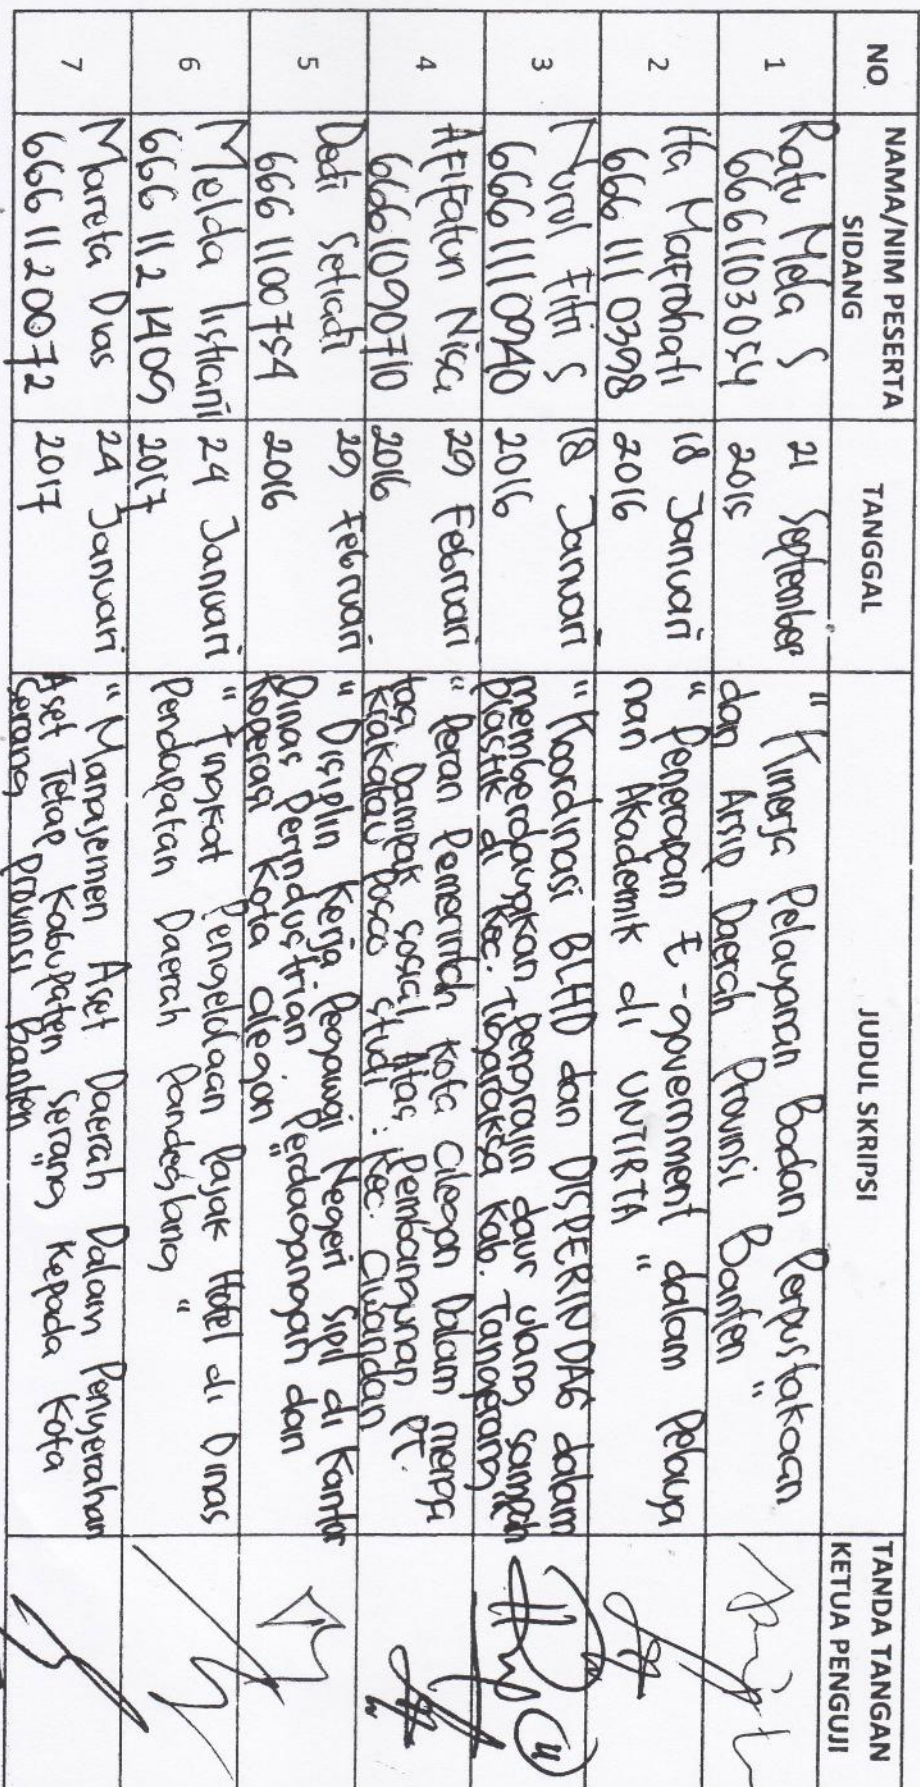 NO
NAMA/NIM PESERTA
SIDANG
TANGGAL
JUDUL SKRIPSI
TANDA TANGAN
KETUA PENGUJI
1
Ratu Mela S
6661103054
21 September
2015
" Kinerja Pelayanan Badan Perpustakaan
dan Arsip Daerah Provinsi Banten "
2
Ita Mafrohati
6661110398
18 Januari
2016
" Penerapan E-government dalam Pelaya
nan Akademik di UNTIRTA "
3
Nurul Fitri S
6661110940
18 Januari
2016
" Koordinasi BLHD dan DISPERINDAG dalam
memberdayakan pengrajin daur ulang sampah
Plastik di Kec. Tigaraksa Kab. Tangerang
4
Afifatun Nisa
6661090710
29 Februari
2016
" Peran Pemerintah Kota Cilegon Dalam
Dampak Sosial Atas Pembangunan PT.
Krakatau Posco studi : Kec. Ciwandan
5
Dedi Setiadi
6661100754
29 Februari
2016
" Disiplin Kerja Pegawai Negeri Sipil di Kantor
Dinas Perindustrian Perdagangan dan
Koperasi Kota Cilegon "
6
Melda listiani
6661121409
24 Januari
2017
" Tingkat Pengelolaan Pajak Hotel di Dinas
Pendapatan Daerah Pandeglang "
7
Mareta Dias
6661120072
24 Januari
2017
" Manajemen Aset Daerah Dalam Penyerahan
Aset Tetap Kabupaten Serang Kepada Kota
Serang Provinsi Banten "